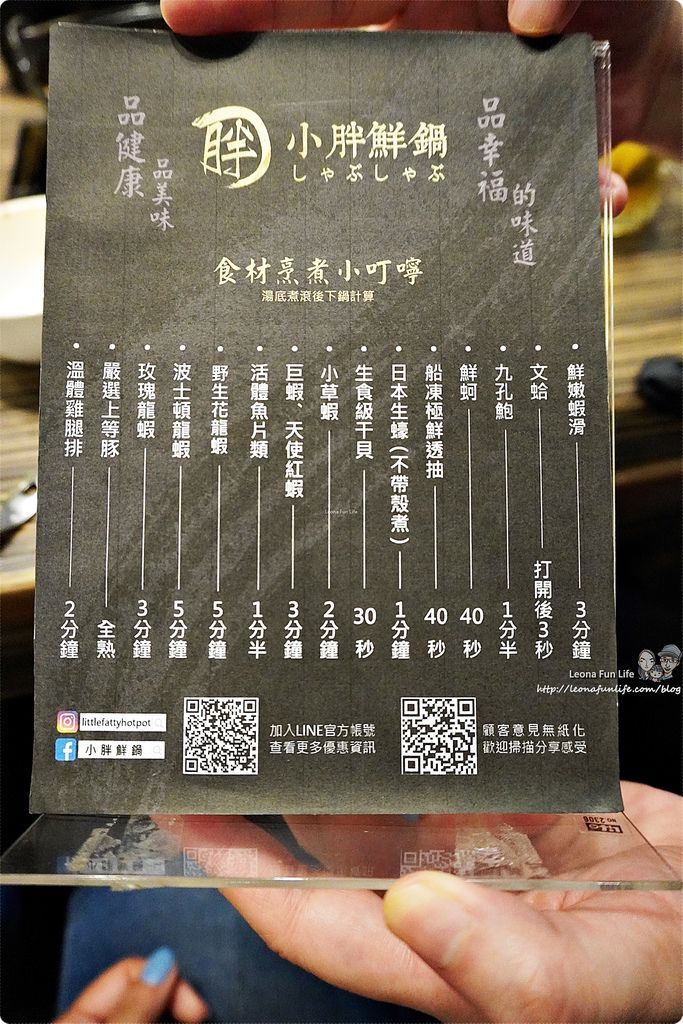 品健康
品美味
胖
小胖鮮鍋
しゃぶしゃぶ
品幸福
的味道
食材烹煮小叮嚀
湯底煮滾後下鍋計算
•鮮嫩蝦滑 3分鐘
•文蛤 打開後3秒
•九孔鮑 1分半
•鮮蚵 40秒
•船凍極鮮透抽 40秒
•日本生蠔(不帶殼煮) 1分鐘
•生食級干貝 30秒
•小草蝦 2分鐘
•巨蝦、天使紅蝦 3分鐘
•活體魚片類 1分半
•野生花龍蝦 5分鐘
•波士頓龍蝦 5分鐘
•玫瑰龍蝦 3分鐘
•嚴選上等豚 全熟
•溫體雞腿排 2分鐘
littlefattyhotpot
小胖鮮鍋
加入LINE官方帳號
查看更多優惠資訊
顧客意見無紙化
歡迎掃描分享感受
Leona Fun Life
Leona Fun Life
http://leonafunlife.com/blog
NO.2306